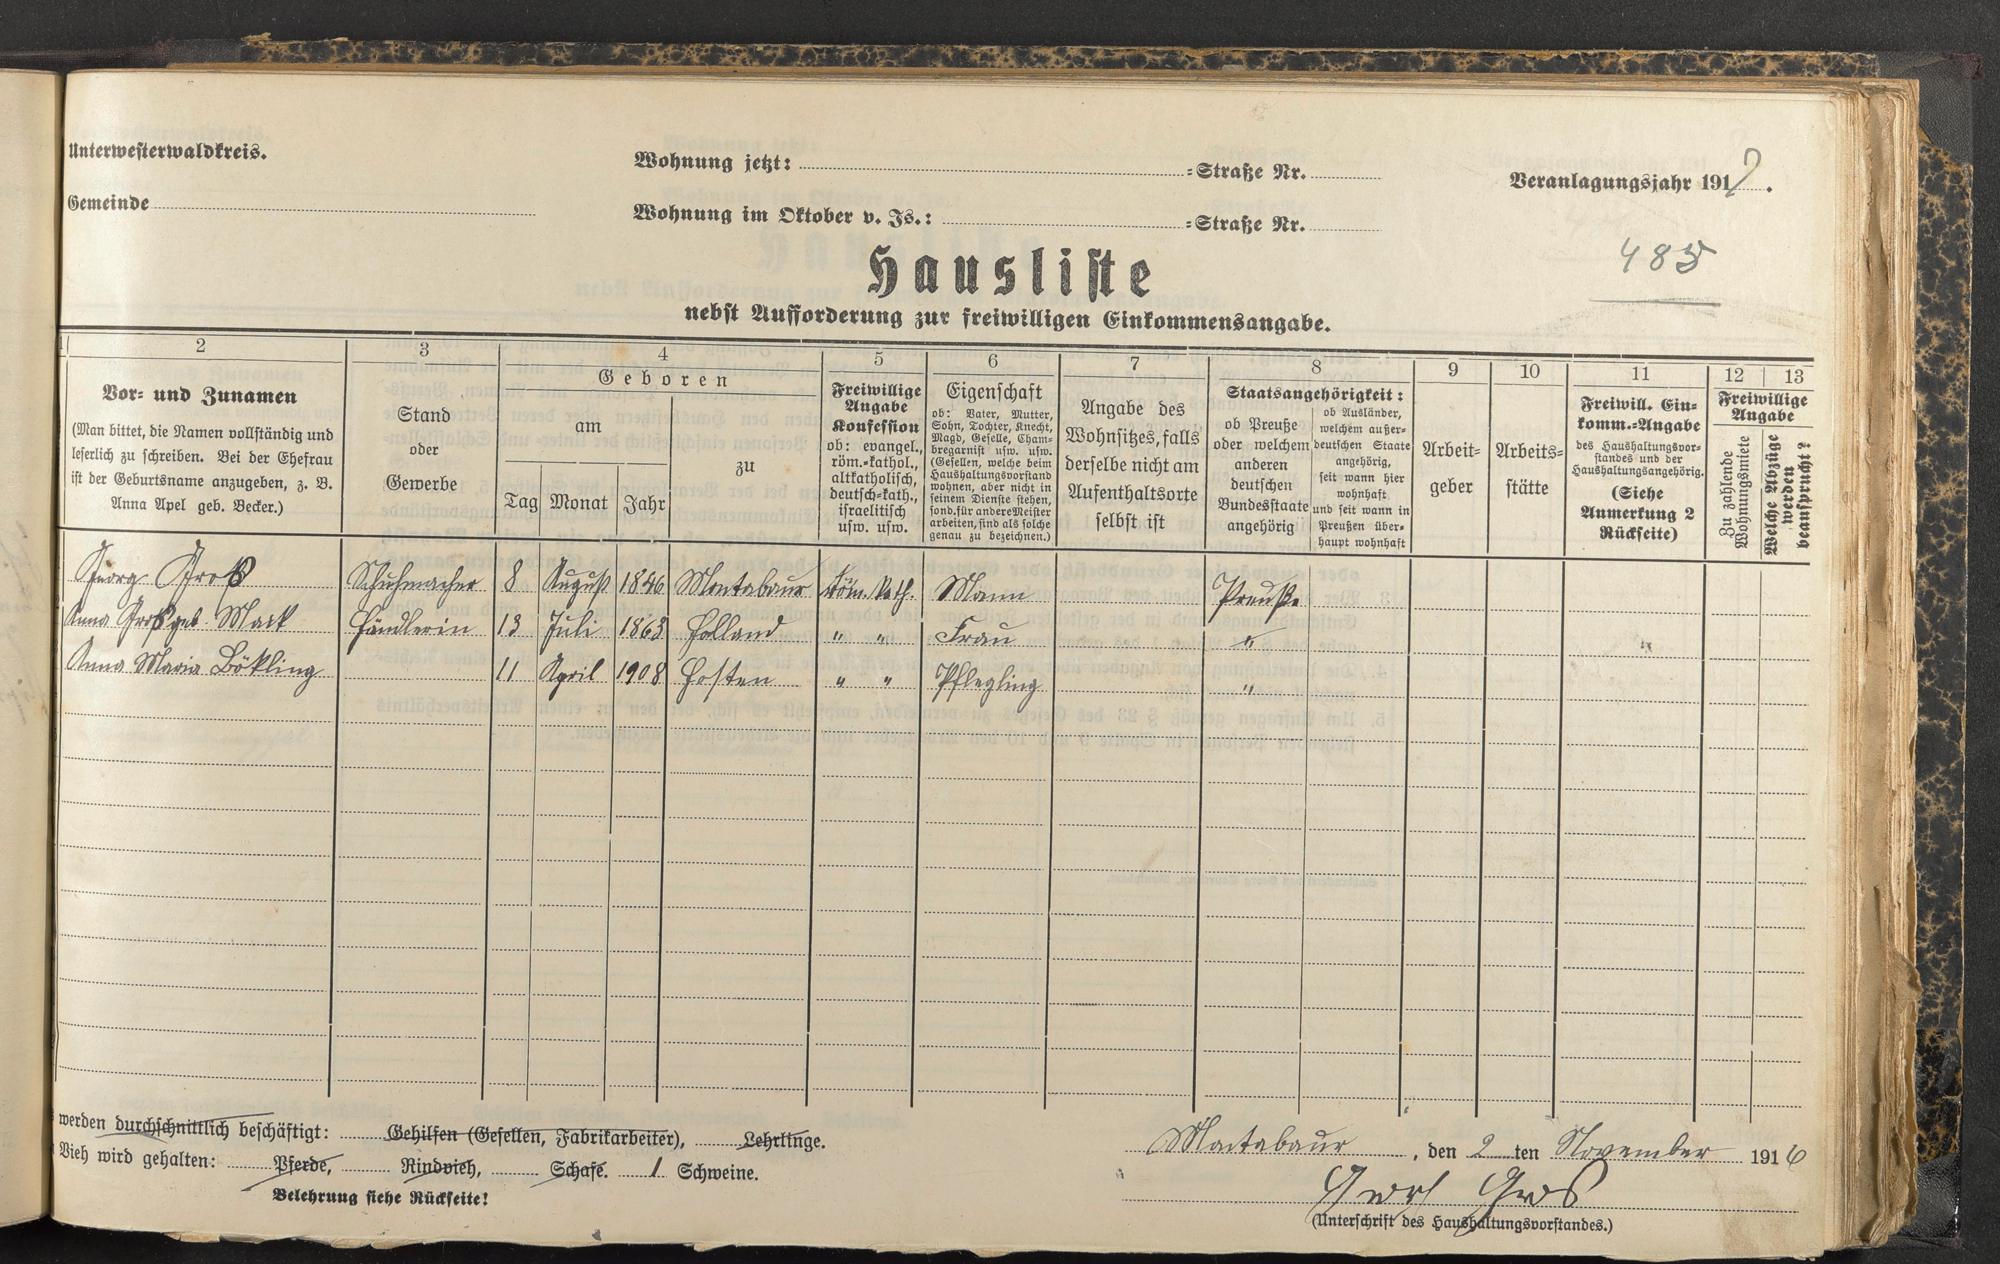 Unterwesterwaldkreis.
Wohnung jetzt: =Straße Nr.
Veranlagungsjahr 1917.
Gemeinde
Wohnung im Oktober v. Js.: =Straße Nr.
485
Hausliste
nebst Aufforderung zur freiwilligen Einkommensangabe.
2 3 4 5 6 7 8 9 10 11 12 13
Vor- und Zunamen
(Man bittet, die Namen vollständig und
leserlich zu schreiben. Bei der Ehefrau
ist der Geburtsname anzugeben, z. B.
Anna Apel geb. Becker.)
Stand
oder
Gewerbe
Geboren
am
Tag Monat Jahr
zu
Freiwillige
Angabe
Konfession
ob: evangel.,
röm.-kathol.,
altkatholisch,
deutsch-kath.,
israelitisch
usw. usw.
Eigenschaft
ob: Vater, Mutter,
Sohn, Tochter, Knecht,
Magd, Geselle, Cham-
bregarnist usw. usw.
(Gesellen, welche beim
Haushaltungsvorstand
wohnen, aber nicht in
seinem Dienste stehen,
sond. für andere Meister
arbeiten, sind als solche
genau zu bezeichnen.)
Angabe des
Wohnsitzes, falls
derselbe nicht am
Aufenthaltsorte
selbst ist
Staatsangehörigkeit:
ob Preuße
oder welchem
anderen
deutschen
Bundesstaate
angehörig
ob Ausländer,
welchem außer-
deutschen Staate
angehörig,
seit wann hier
wohnhaft
und seit wann in
Preußen über-
haupt wohnhaft
Arbeit-
geber
Arbeits-
stätte
Freiwill. Ein-
komm.-Angabe
des Haushaltungsvor-
standes und der
Haushaltungsangehörig.
(Siehe
Anmerkung 2
Rückseite)
Freiwillige
Angabe
Zu zahlende
Wohnungsmiete
Welche Abzüge
werden
beansprucht?
Georg Groß Schuhmacher 8 August 1846 Montabaur Röm. Kath. Mann Preuße
Anna Groß geb. Mark Händlerin 13 Juli 1863 Holland " " Frau "
Anna Maria Bökling 11 April 1908 Hosten " " Pflegling "
werden durchschnittlich beschäftigt: Gehilfen (Gesellen, Fabrikarbeiter), Lehrlinge.
Vieh wird gehalten: Pferde, Rindvieh, Schafe. 1 Schweine.
Belehrung siehe Rückseite!
Montabaur, den 2 ten November 1916
Georg Gros
(Unterschrift des Haushaltungsvorstandes.)